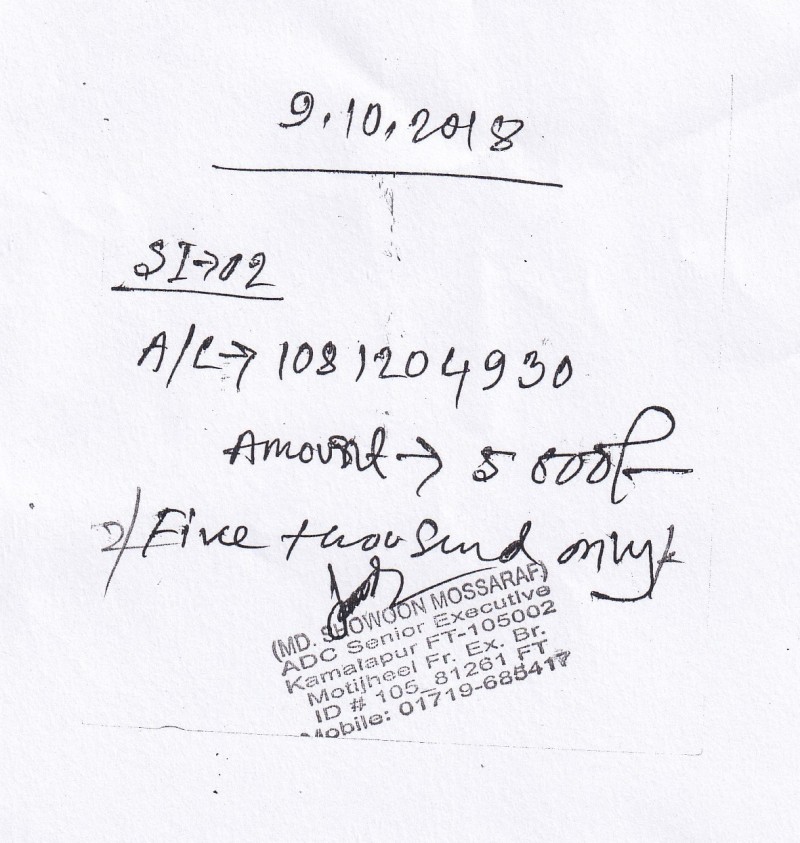 9.10.2018
SI→02
A/C→ 1081204930
Amount → 5000/-
Five thousand only/-
(MD. SHOWOON MOSSARAF)
ADC Senior Executive
Kamalapur FT-105002
Motijheel Fr. Ex. Br.
ID # 105_81261 FT
Mobile: 01719-685417